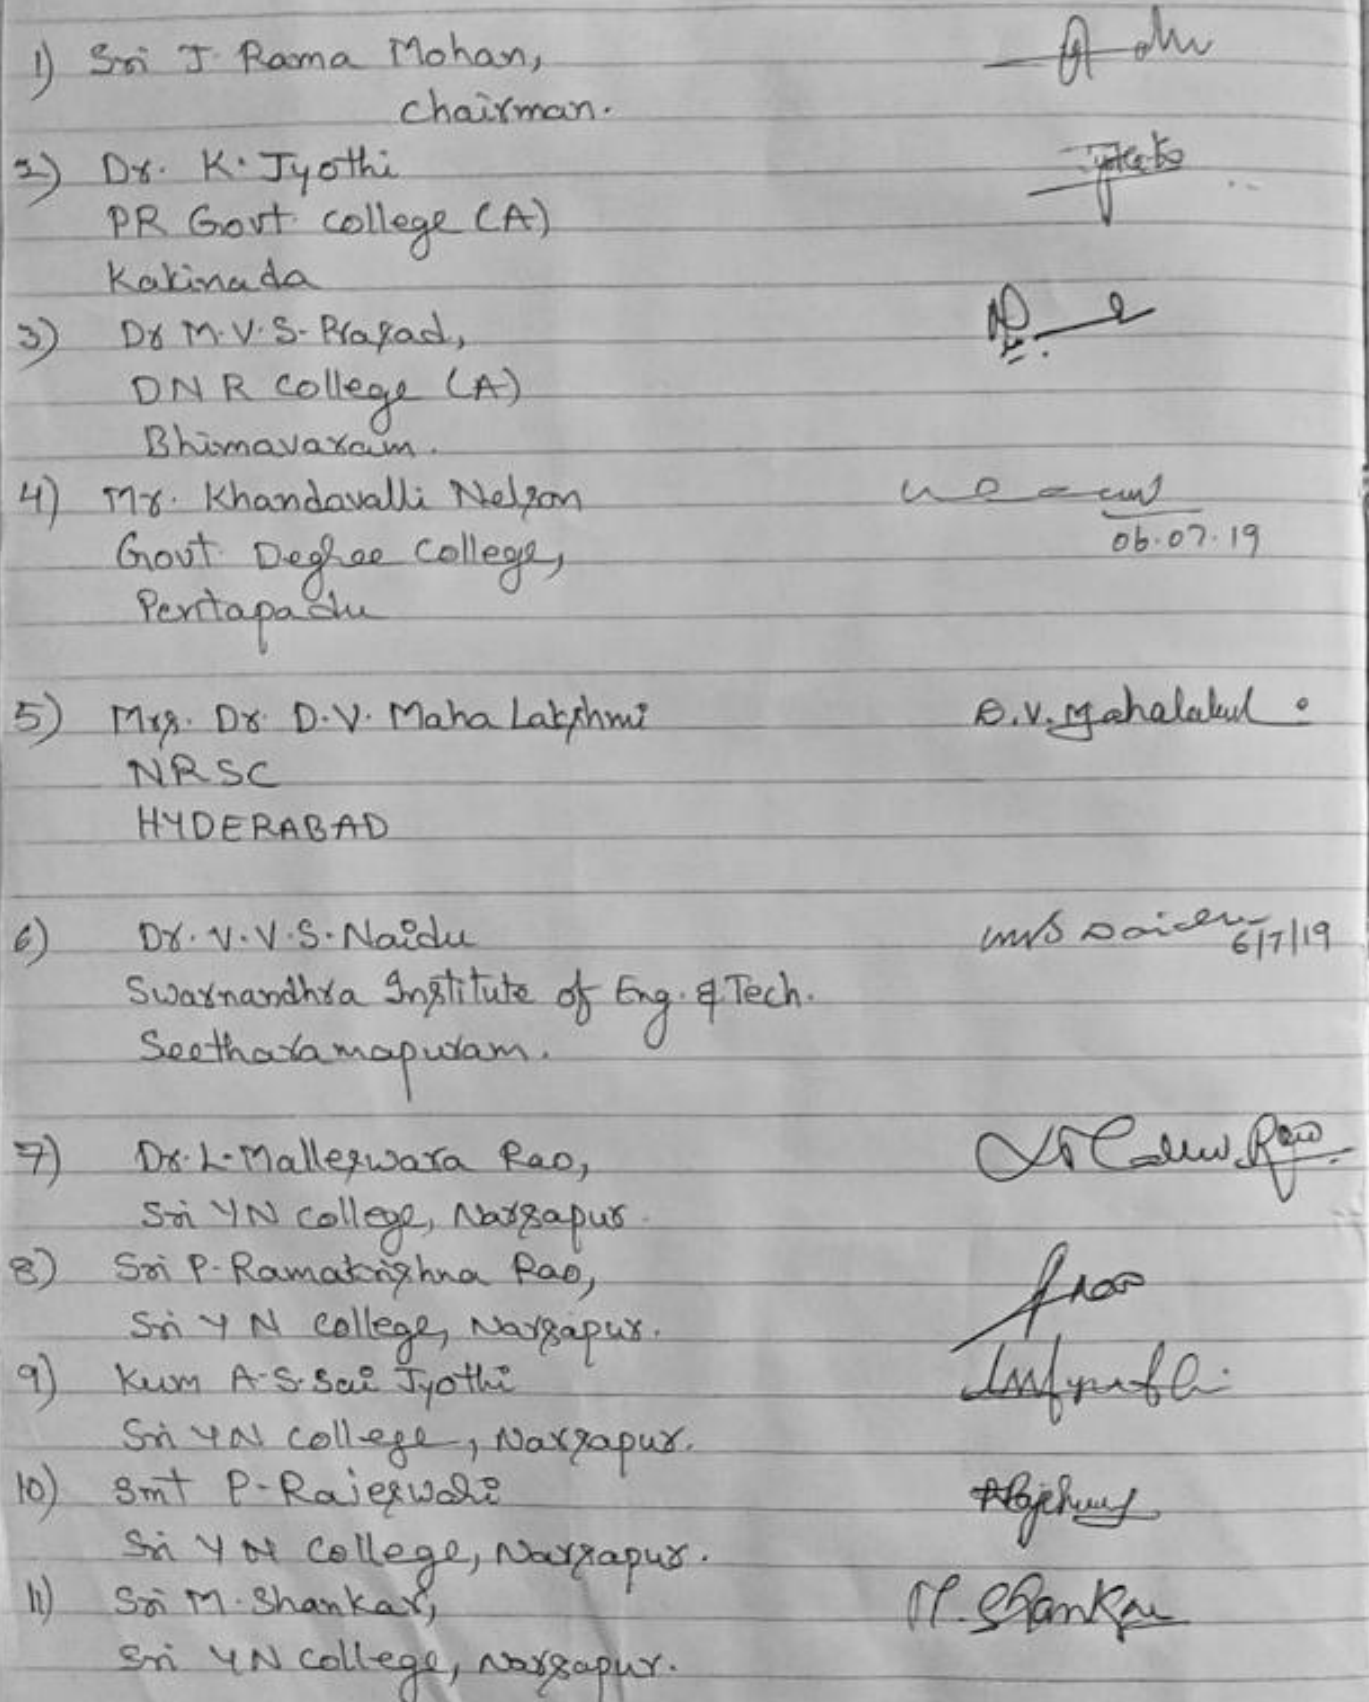 1) Sri J. Rama Mohan,
Chairman.
2) Dr. K. Jyothi
PR Govt. College (A)
Kakinada
3) Dr M.V.S. Prasad,
DNR College (A)
Bhimavaram.
4) Mr. Khandavalli Nelson
Govt. Degree College,
06.07.19
Pentapadu
5) Mrs. Dr. D.V. Maha Lakshmi
NRSC
HYDERABAD
6) Dr. V.V.S. Naidu
6/7/19
Swarnandhra Institute of Eng. & Tech.
Seetharamapuram.
7) Dr. L. Malleswara Rao,
Sri YN College, Narsapur.
8) Sri P. Ramakrishna Rao,
Sri YN College, Narsapur.
9) Kum A.S. Sai Jyothi
Sri YN College, Narsapur.
10) Smt P. Rajeswari
Sri YN College, Narsapur.
11) Sri M. Shankar, M. Shankar
Sri YN College, Narsapur.